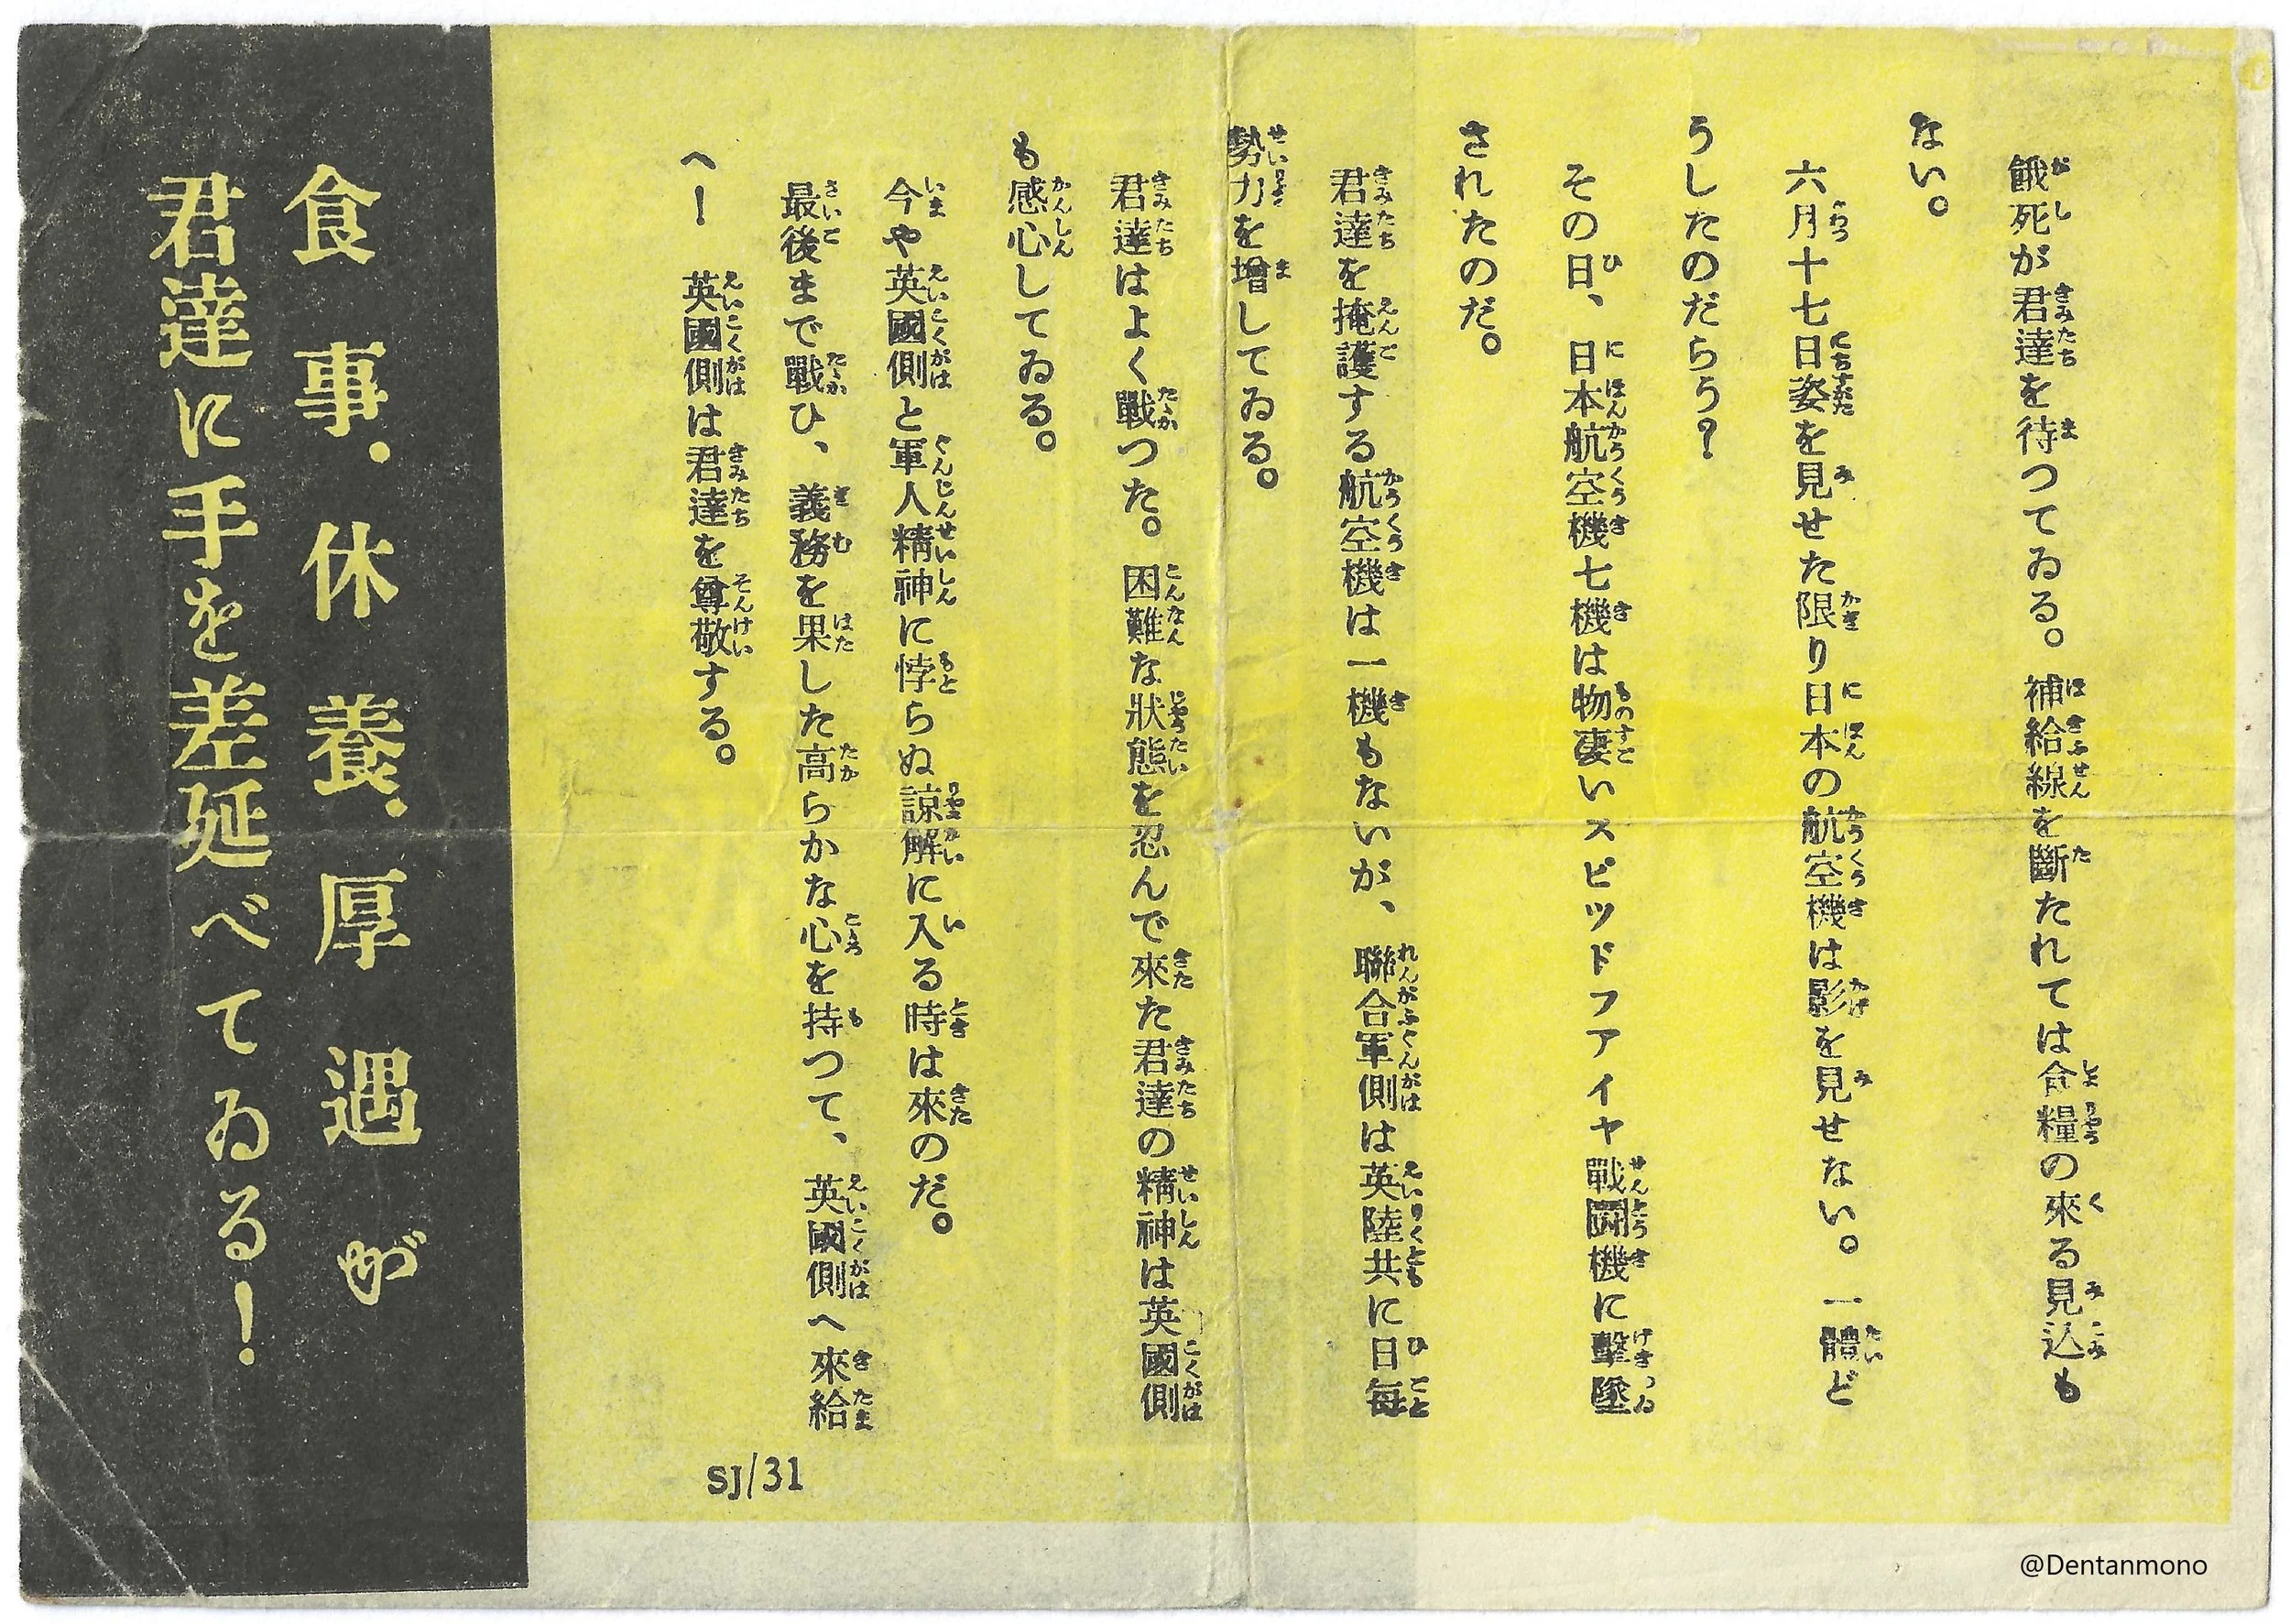 餓死が君達を待つてゐる。補給線を斷たれては食糧の來る見込も
ない。
六月十七日姿を見せた限り日本の航空機は影を見せない。一體ど
うしたのだらう?
その日、日本航空機七機は物凄いスピツドフアイヤ戰鬪機に擊墜
されたのだ。
君達を掩護する航空機は一機もないが、聯合軍側は英陸共に日每
勢力を增してゐる。
君達はよく戰つた。困難な狀態を忍んで來た君達の精神は英國側
も感心してゐる。
今や英國側と軍人精神に悖らぬ諒解に入る時は來のだ。
最後まで戰ひ、義務を果した高らかな心を持つて、英國側へ來給
へー 英國側は君達を尊敬する。
SJ/31
食事、休養、厚遇が
君達に手を差延べてゐる!
@Dentanmono